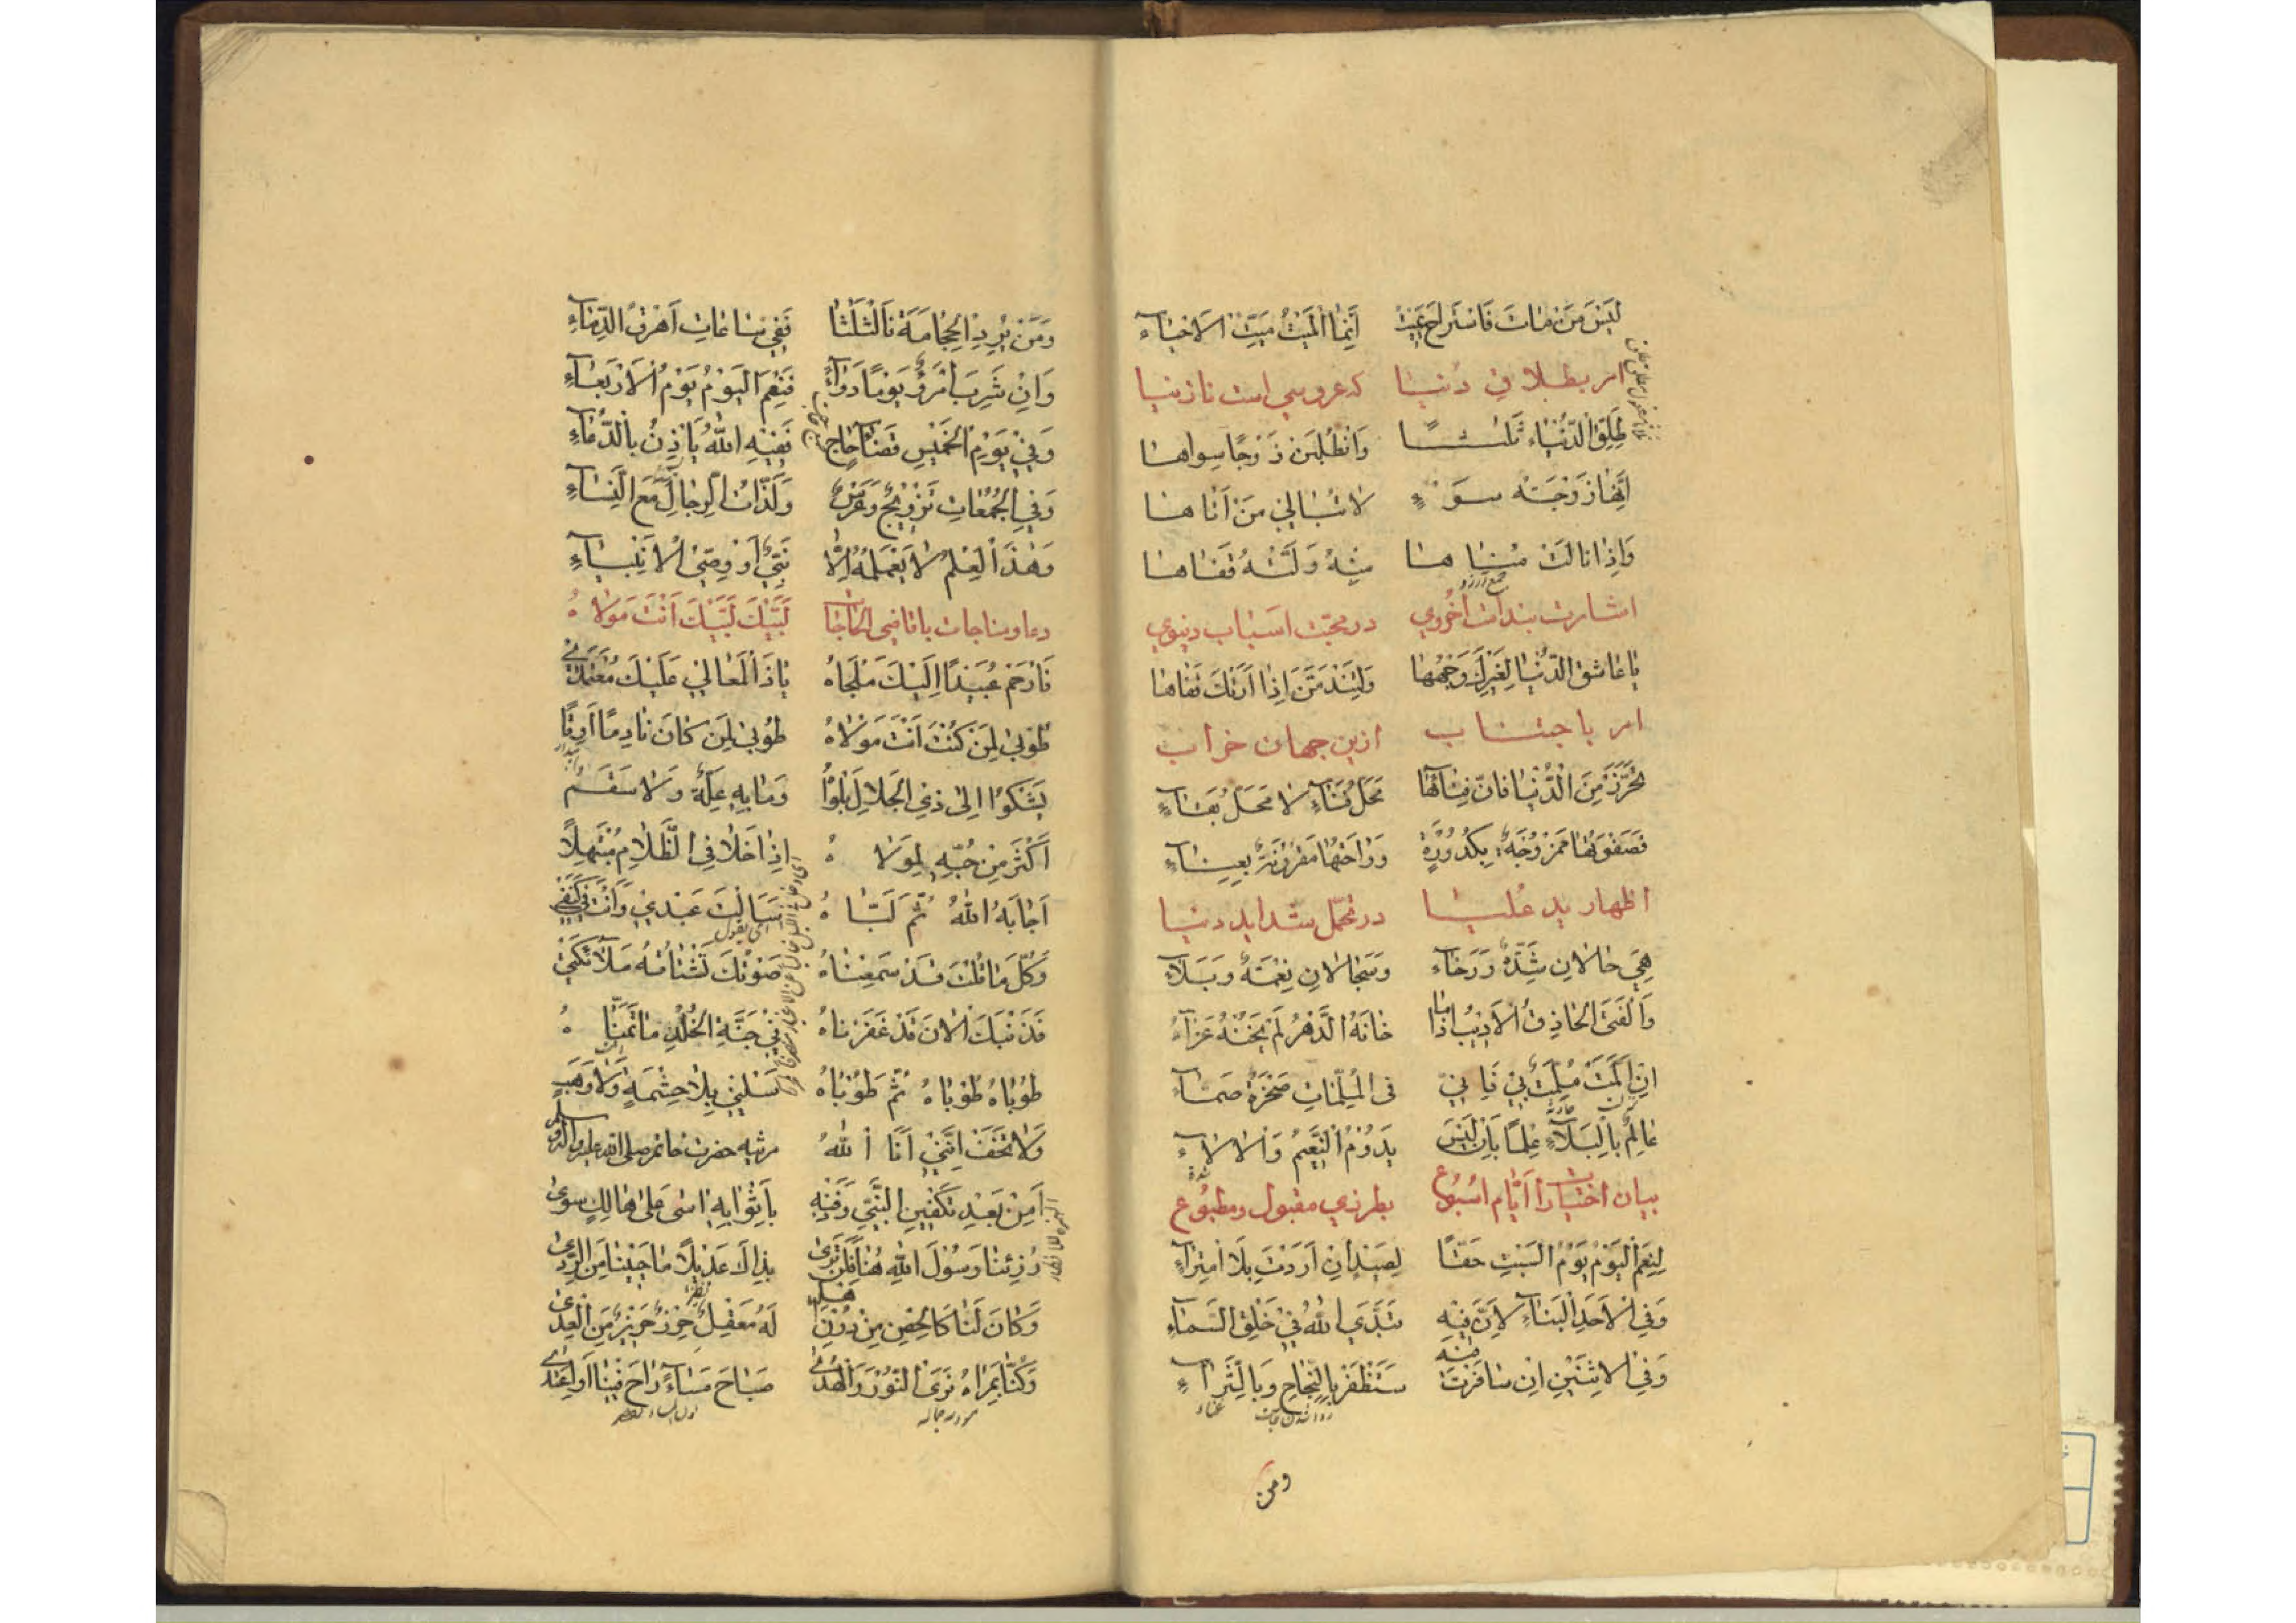 لَيْسَ مَنْ مَاتَ فَاسْتَرَاحَ بِمَيْتٍ اِنَّمَا الْمَيْتُ مَيِّتُ الْاَحْيَاءِ
امر بطلاق دنیا که عروسی است نازنیا
طَلِّقِ الدُّنْيَا ثَلٰثًا وَاطْلُبَنْ زَوْجًا سِوَاهَا
اِنَّهَا زَوْجَةُ سَوْءٍ لَا تُبَالِي مَنْ اَتَاهَا
وَاِذَا نَالَتْ مُنَاهَا مِنْهُ وَلَّتْهُ قَفَاهَا
اشارت بندامت اُخروي در محبّت اسباب دنیوي
يَا عَاشِقَ الدُّنْيَا لِغَيْرِكَ وَجْهُهَا وَلَتَنْدَمَنَّ اِذَا اَرَتْكَ قَفَاهَا
امر باجتناب ازین جهان خراب
تَحَرَّزْ مِنَ الدُّنْيَا فَاِنَّ فِنَاءَهَا مَحَلُّ فَنَاءٍ لَا مَحَلُّ بَقَاءٍ
فَصَفْوَتُهَا مَمْزُوجَةٌ بِكُدُورَةٍ وَرَاحَتُهَا مَقْرُونَةٌ بِعَنَاءٍ
اظهار ید عُلیا در تحمّل شداید دنیا
هِيَ حَالَانِ شِدَّةٌ وَرَخَاءٌ وَسِجَالَانِ نِعْمَةٌ وَبَلَاءٌ
وَالْفَتَى الْحَاذِقُ الْاَدِيبُ اِذَا مَا خَانَهُ الدَّهْرُ لَمْ يَخُنْهُ عَزَاءٌ
اِنْ اَلَمَّتْ مُلِمَّةٌ بِي فَاِنِّي فِى الْمُلِمَّاتِ صَخْرَةٌ صَمَّاءُ
عَالِمٌ بِالْبَلَاءِ عِلْمًا بِاَنْ لَيْسَ يَدُومُ النَّعِيمُ وَالْاٰلَاءُ
بیان اختیارات اَیّام اسبوع بطرزي مقبول ومطبوع
لَنِعْمَ الْيَوْمُ يَوْمُ السَّبْتِ حَقًّا لِصَيْدٍ اِنْ اَرَدْتَ بِلَا امْتِرَاءٍ
وَفِي الْاَحَدِ الْبِنَاءُ لِاَنَّ فِيهِ تَبَدَّى اللهُ فِي خَلْقِ السَّمَاءِ
وَفِي الْاِثْنَيْنِ اِنْ سَافَرْتَ فِيهِ سَتَظْفَرُ بِالنَّجَاحِ وَبِالثَّرَاءِ
ومن
وَمَنْ يُرِدِ الْحِجَامَةَ فَالثُّلٰثَا فَفِي سَاعَاتِهِ اَهْرِقِ الدِّمَاءِ
وَاِنْ شَرِبَ امْرُؤٌ يَوْمًا دَوَاءً فَنِعْمَ الْيَوْمُ يَوْمُ الْاَرْبَعَاءِ
وَفِي يَوْمِ الْخَمِيسِ قَضَاءُ حَاجٍ فَفِيهِ اللهُ يَاْذَنُ بِالدُّعَاءِ
وَفِي الْجُمُعَاتِ تَزْوِيجٌ وَعُرْسٌ وَلَذَّاتُ الرِّجَالِ مَعَ النِّسَاءِ
وَهٰذَا الْعِلْمُ لَا يَعْلَمُهُ اِلَّا نَبِيٌّ اَوْ وَصِيُّ الْاَنْبِيَاءِ
دعا ومناجات با قاضي الحاجات لَبَّيْكَ لَبَّيْكَ اَنْتَ مَوْلَاهُ
فَارْحَمْ عُبَيْدًا اِلَيْكَ مَلْجَاهُ يَا ذَا الْمَعَالِي عَلَيْكَ مُعْتَمَدِي
طُوبٰى لِمَنْ كُنْتَ اَنْتَ مَوْلَاهُ طُوبٰى لِمَنْ كَانَ نَادِمًا اَرِقًا
يَشْكُوا اِلٰى ذِي الْجَلَالِ بَلْوَاهُ وَمَا بِهِ عِلَّةٌ وَلَا سَقَمٌ
اَكْثَرَ مِنْ حُبِّهِ لِمَوْلَاهُ اِذَا خَلَا فِي الظَّلَامِ مُبْتَهِلًا
اَجَابَهُ اللهُ ثُمَّ لَبَّاهُ سَاَلْتَ عَبْدِي وَاَنْتَ فِي كَنَفِي
وَكُلَّ مَا قُلْتَ قَدْ سَمِعْنَاهُ صَوْتُكَ تَشْتَاقُهُ مَلَائِكَتِي
فَذَنْبَكَ الْاٰنَ قَدْ غَفَرْنَاهُ فِي جَنَّةِ الْخُلْدِ مَا تَمَنَّاهُ
طُوبَاهُ طُوبَاهُ ثُمَّ طُوبَاهُ سَلْنِي بِلَا حِشْمَةٍ وَلَا رَهَبٍ
وَلَا تَخَفْ اِنَّنِي اَنَا اللهُ مرثیه حضرت خاتم صلی الله علیه واله وسلم
اَمِنْ بَعْدِ تَكْفِينِ النَّبِيِّ وَدَفْنِهِ بِاَثْوَابِهِ اٰسٰى عَلٰى هَالِكٍ سِوٰى
رُزِئْنَا رَسُولَ اللهِ فِينَا فَلَنْ نَرٰى بِذَاكَ عَدِيلًا مَا حَيِينَا مِنَ الرَّدٰى
وَكَانَ لَنَا كَالْحِصْنِ مِنْ دُونِ اَهْلِهِ لَهُ مَعْقِلٌ حِرْزٌ حَرِيزٌ مِنَ الْعِدٰى
وَكُنَّا بِمَرْاٰهُ نَرَى النُّورَ وَالْهُدٰى صَبَاحَ مَسَاءً رَاحَ فِينَا اَوِ اغْتَدٰى